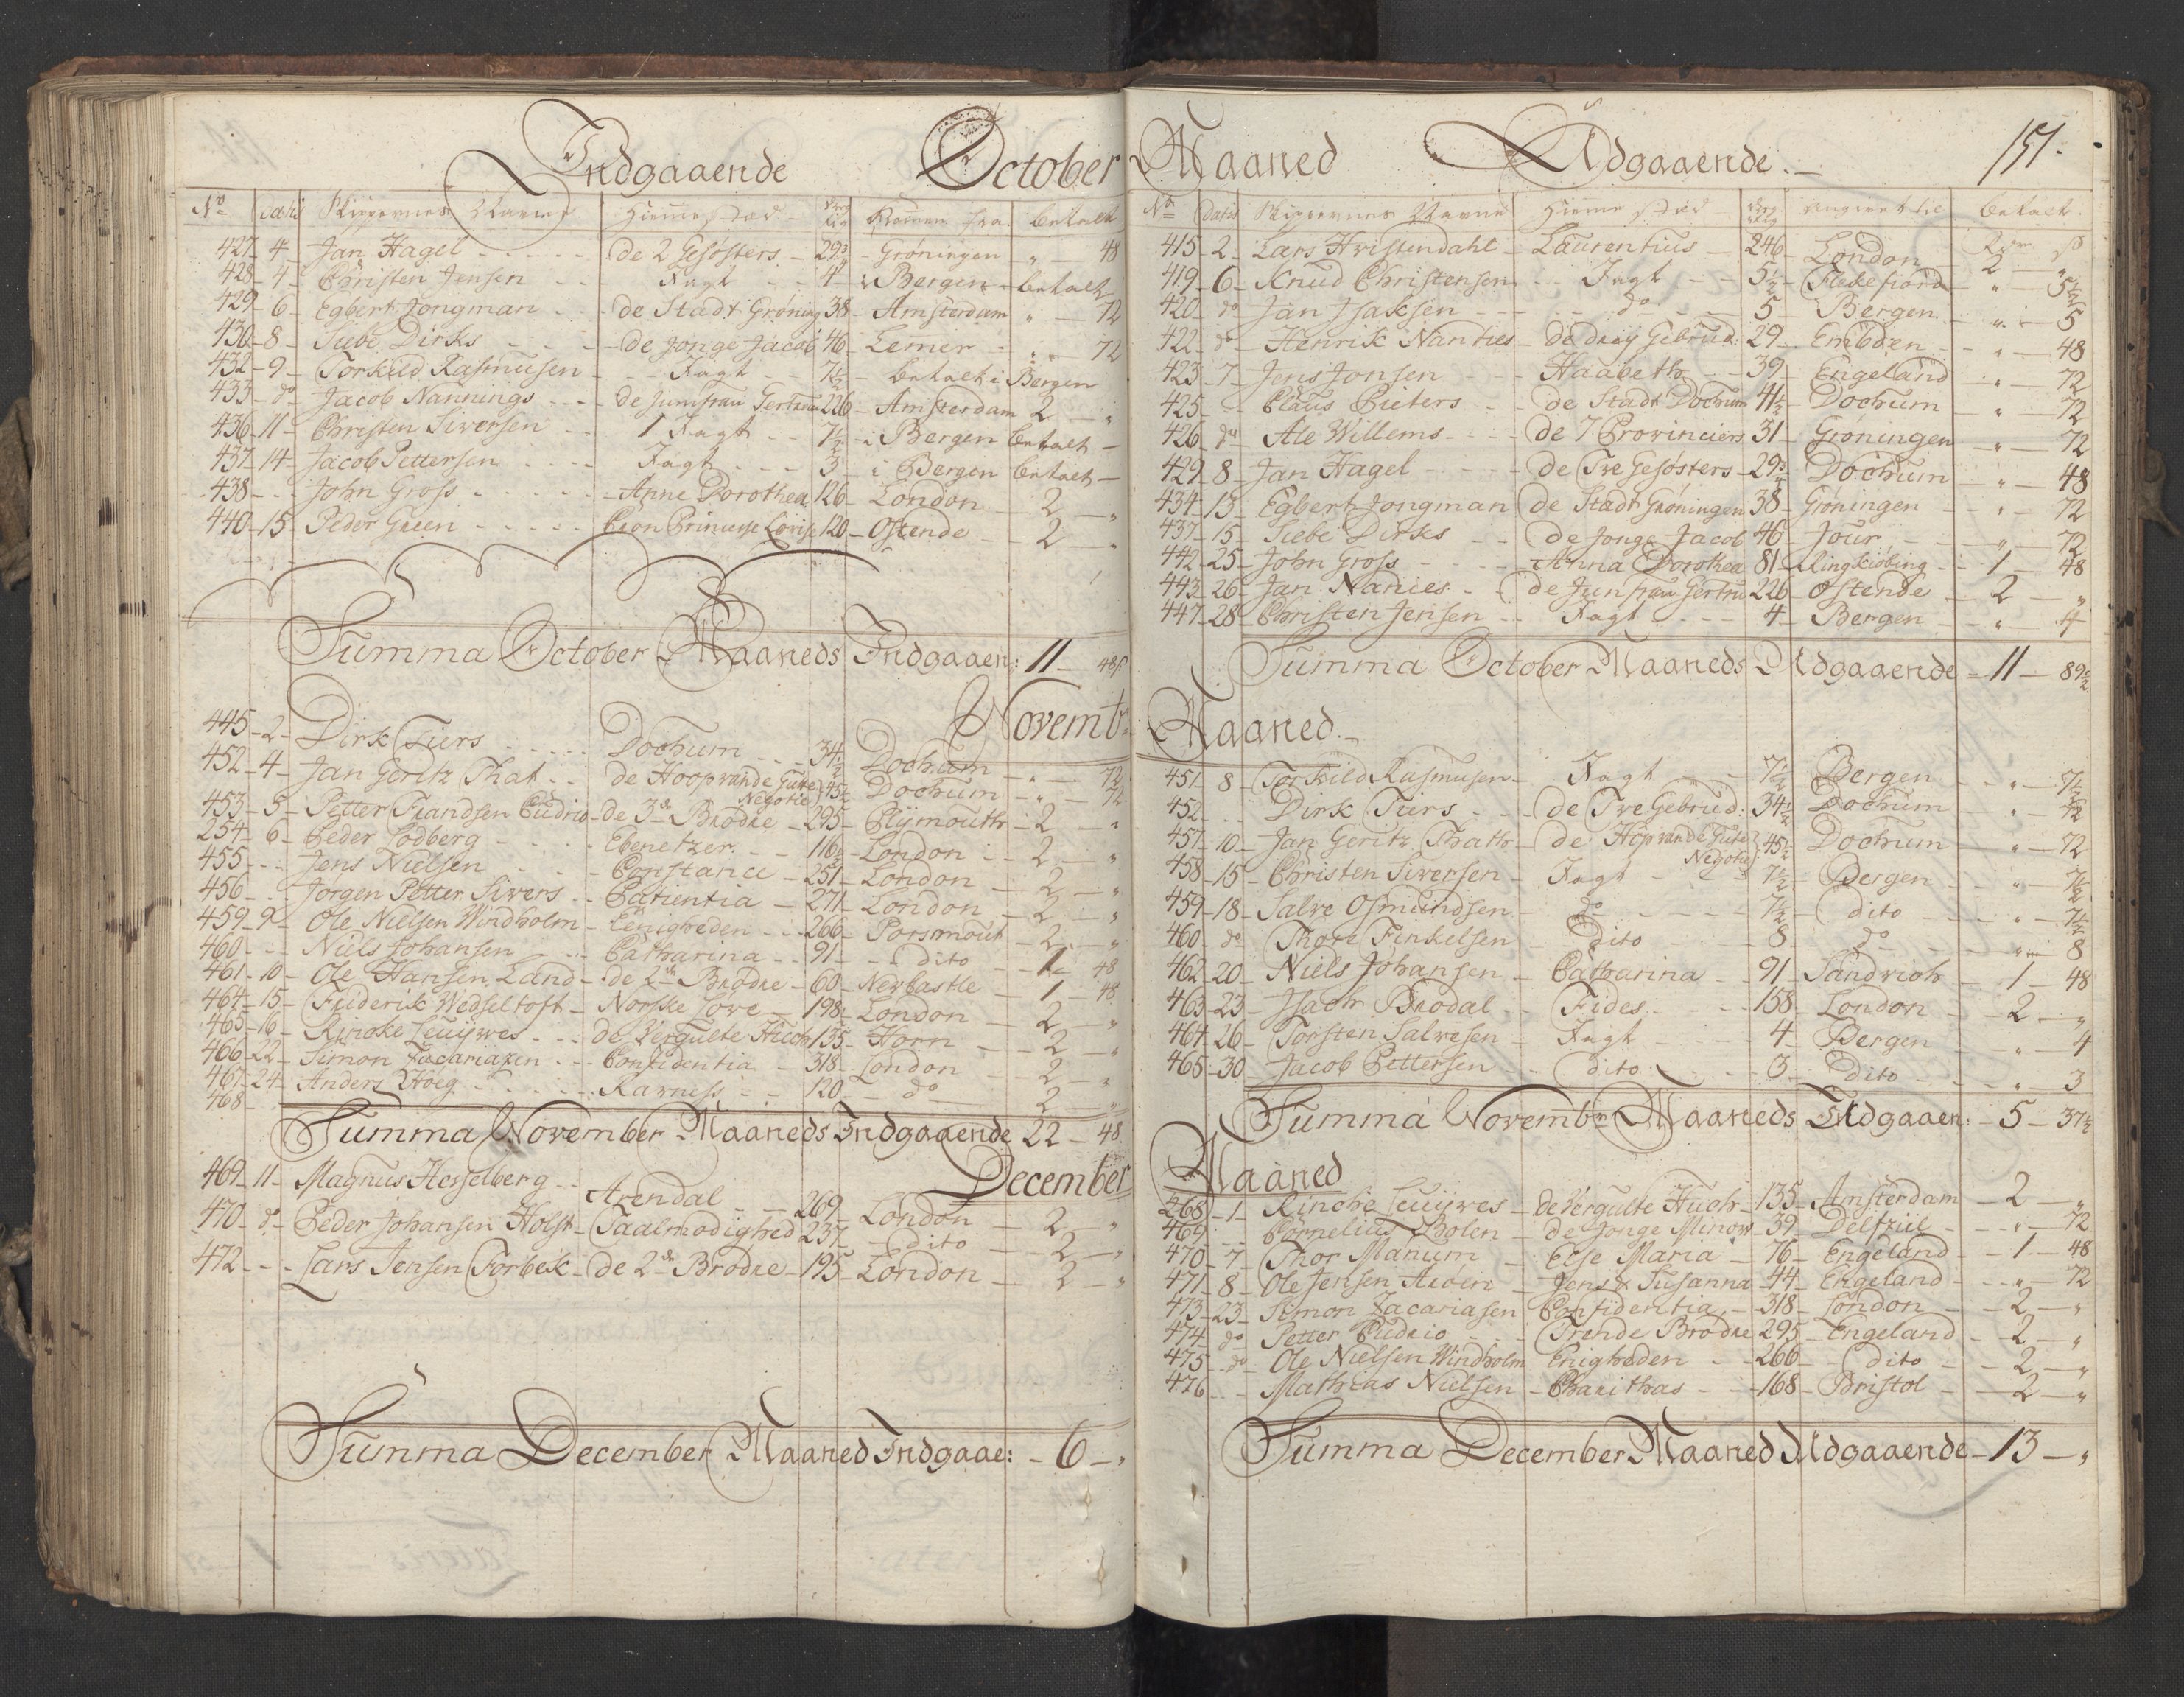 Indgaaende October
No Datis Skippernes Navne Hiemsted Dræg tig Kommen fra betalt
427 - 4 - Jan Hagel - de 2 Gesösters - 29 3/4 - Gröningen " - 48
428 - 4 - Christen Jensen - Jagt - 4 - i Bergen - betalt
429 - 6 - Egbert Jongman - de Stadt Gröning 38 - Amsterdam " - 72
430 - 8 - Siebe Dirks - de Jonge Jacob 46 - Lemer - " - 72
432 - 9 - Torkild Rasmusen - Jagt - 7 1/2 - betalt i Bergen
433 - do - Jacob Nannings - de Jumfrau Gertrua 226 - Amsterdam 2 - "
436 - 11 - Christen Siversen - 1 Jagt - 7 1/2 - i Bergen betalt -
437 - 14 - Jacob Pettersen - Jagt - 3 - i Bergen betalt -
438 - - John Gross - Anne Dorothea 126 - London - 2 - "
440 - 15 - Peder Green - Cron Princesse Lovise 120 - Ostende - 2 - "
Summa October Maaneds Indgaaen: 11 - 48 ß
Novembr.
445 - 2 - Dirk Tiers - Dochum - 34 1/2 Dochum - " - 72
452 - 4 - Jan Geritz That - de Hoop van de Gute Negotie 45 1/2 Dochum - " - 72
453 - 5 - Petter Frandsen Cudrio - de 3de Brödre - 295 - Plÿmouth - 2 - "
254 - 6 - Peder Lodberg - Ebenetzer - 116 1/2 - London - 2 - "
455 - - Jens Nielsen - Constance - 251 - London - 2 - "
456 - - Jorgen Petter Sivers - Patientia - 271 - London - 2 - "
459 - 9 - Ole Nielsen Windholm - Eenigheden - 266 - Porsmout - 2 - "
460 - - Niels Johansen - Catharina - 91 - dito - 1 - 48
461 - 10 - Ole Hansen Land - de 2de Brödre - 60 - Newcastle - 1 - 48
464 - 15 - Friderik Wedseltoft - Norske Love - 198 1/2 London - 2 - "
465 - 16 - Rincke Leuÿwes - De Vergulte Huch 135 - Horn - 2 - "
466 - 22 - Simon Zacariazen - Confidentia - 318 - London - 2 - "
467 - 24 - Anders Höeg - Karness - 120 - do - 2 - "
468
Summa November Maaneds Indgaaende 22 - 48
December
469 - 11 - Magnus Hesselberg - Arendal - 269 - London - 2 - "
470 - do - Peder Johansen Holst - Taalmodighed 237 - dito - 2 - "
472 - - Lars Jensen Forbek - de 2de Brödre - 195 - London - 2 - "
Summa December Maaned Indgaae: - 6 - "
Maaned Udgaaende. 151.
No Datis Skippernes Navne Hiemsted Dræg tig Angivet til betalt.
Rdr ß
415 - 2 - Lars Hvistendahl - Laurentius - 246 - London - 2 - "
419 - 6 - Knud Christensen - Jagt - 5 1/2 - Flekefiord - " - 5 1/2
420 - do - Jan Jsaksen - do - 5 - Bergen - " - 5
422 - do - Henrik Nanties - de dreÿ Gebrüd: 29 - Embden - " - 48
423 - 7 - Jens Jonsen - Haabeth - 39 - Engeland - " - 72
425 - - Claus Pieters - de Stadt Dochum 41 1/2 - Dochum - " - 72
426 - do - Ale Willems - de 7 Provinciers 31 - Groningen - " - 72
429 - 8 - Jan Hagel - de Tve Gesösters - 29 3/4 - Dochum - " - 48
434 - 13 - Egbert Jongman de Stadt Gröningen 38 - Gröningen - " - 72
437 - 15 - Siebe Dirks - de Jonge Jacob 46 - Jour - " - 72
442 - 25 - John Gross - Anna Dorothea 81 - Ringkiöbing - 1 - 48
443 - 26 - Jan Nanies - de Junfrau Gertru 226 - Ostende - 2 - "
447 - 28 - Christen Jensen - Jagt - 4 - Bergen - " - 4
Summa October Maaneds Udgaaende - 11 - 89 1/2
Maaned.
451 - 8 - Torkild Rasmusen - Jagt - 7 1/2 Bergen - " - 7 1/2
452 - - Dirk Tiers - de Tve Gebrüd: 34 1/2 Dochum - " - 72
457 - 10 - Jan Geritz Thath - de Hop van de Gute Negotie 45 1/2 Dochum - " - 72
458 - 15 - Christen Siversen - Jagt - 7 1/2 - Bergen - " - 7 1/2
459 - 18 - Salve Osmundsen - do - 7 1/2 - dito - " - 7 1/2
460 - do - Thore Finkelsen - Dito - 8 - do - " - 8
462 - 20 - Niels Johansen - Catharina - 91 - Sandvich - 1 - 48
463 - 23 - Jsach Brodal - Fides - 158 - London - 2 - "
464 - 26 - Torsten Salvesen - Jagt - 4 - Bergen - " - 4
465 - 30 - Jacob Pettersen - dito - 3 - dito - " - 3
Summa Novembr Maaneds Udgaaen: - 5 - 37 1/2
Maaned
268 - 1 - Rinche Leuÿwes - de Vergulte Huch - 135 - Amsterdam - 2 - "
469 - - Cornelius Bolen - de Jonge Minow - 39 - Delfziil - " - 72
470 - 7 - Thor Manum - Else Maria - 76 - Engeland - 1 - 48
471 - 8 - Ole Jensen Aröen - Jens & Susanna - 44 - Engeland - " - 72
473 - 23 - Simon Zacariasen Confidentia - 318 - London - 2 - "
474 - do - Petter Cudrio - Trende Brödre 295 - Engeland - 2 - "
475 - do - Ole Nielsen Windholm Enigheden - 266 - dito - 2 - "
476 - - Mathias Nielsen - Charithas - 168 - Bristol - 2 - "
Summa December Maaned Udgaaende - 13 - "